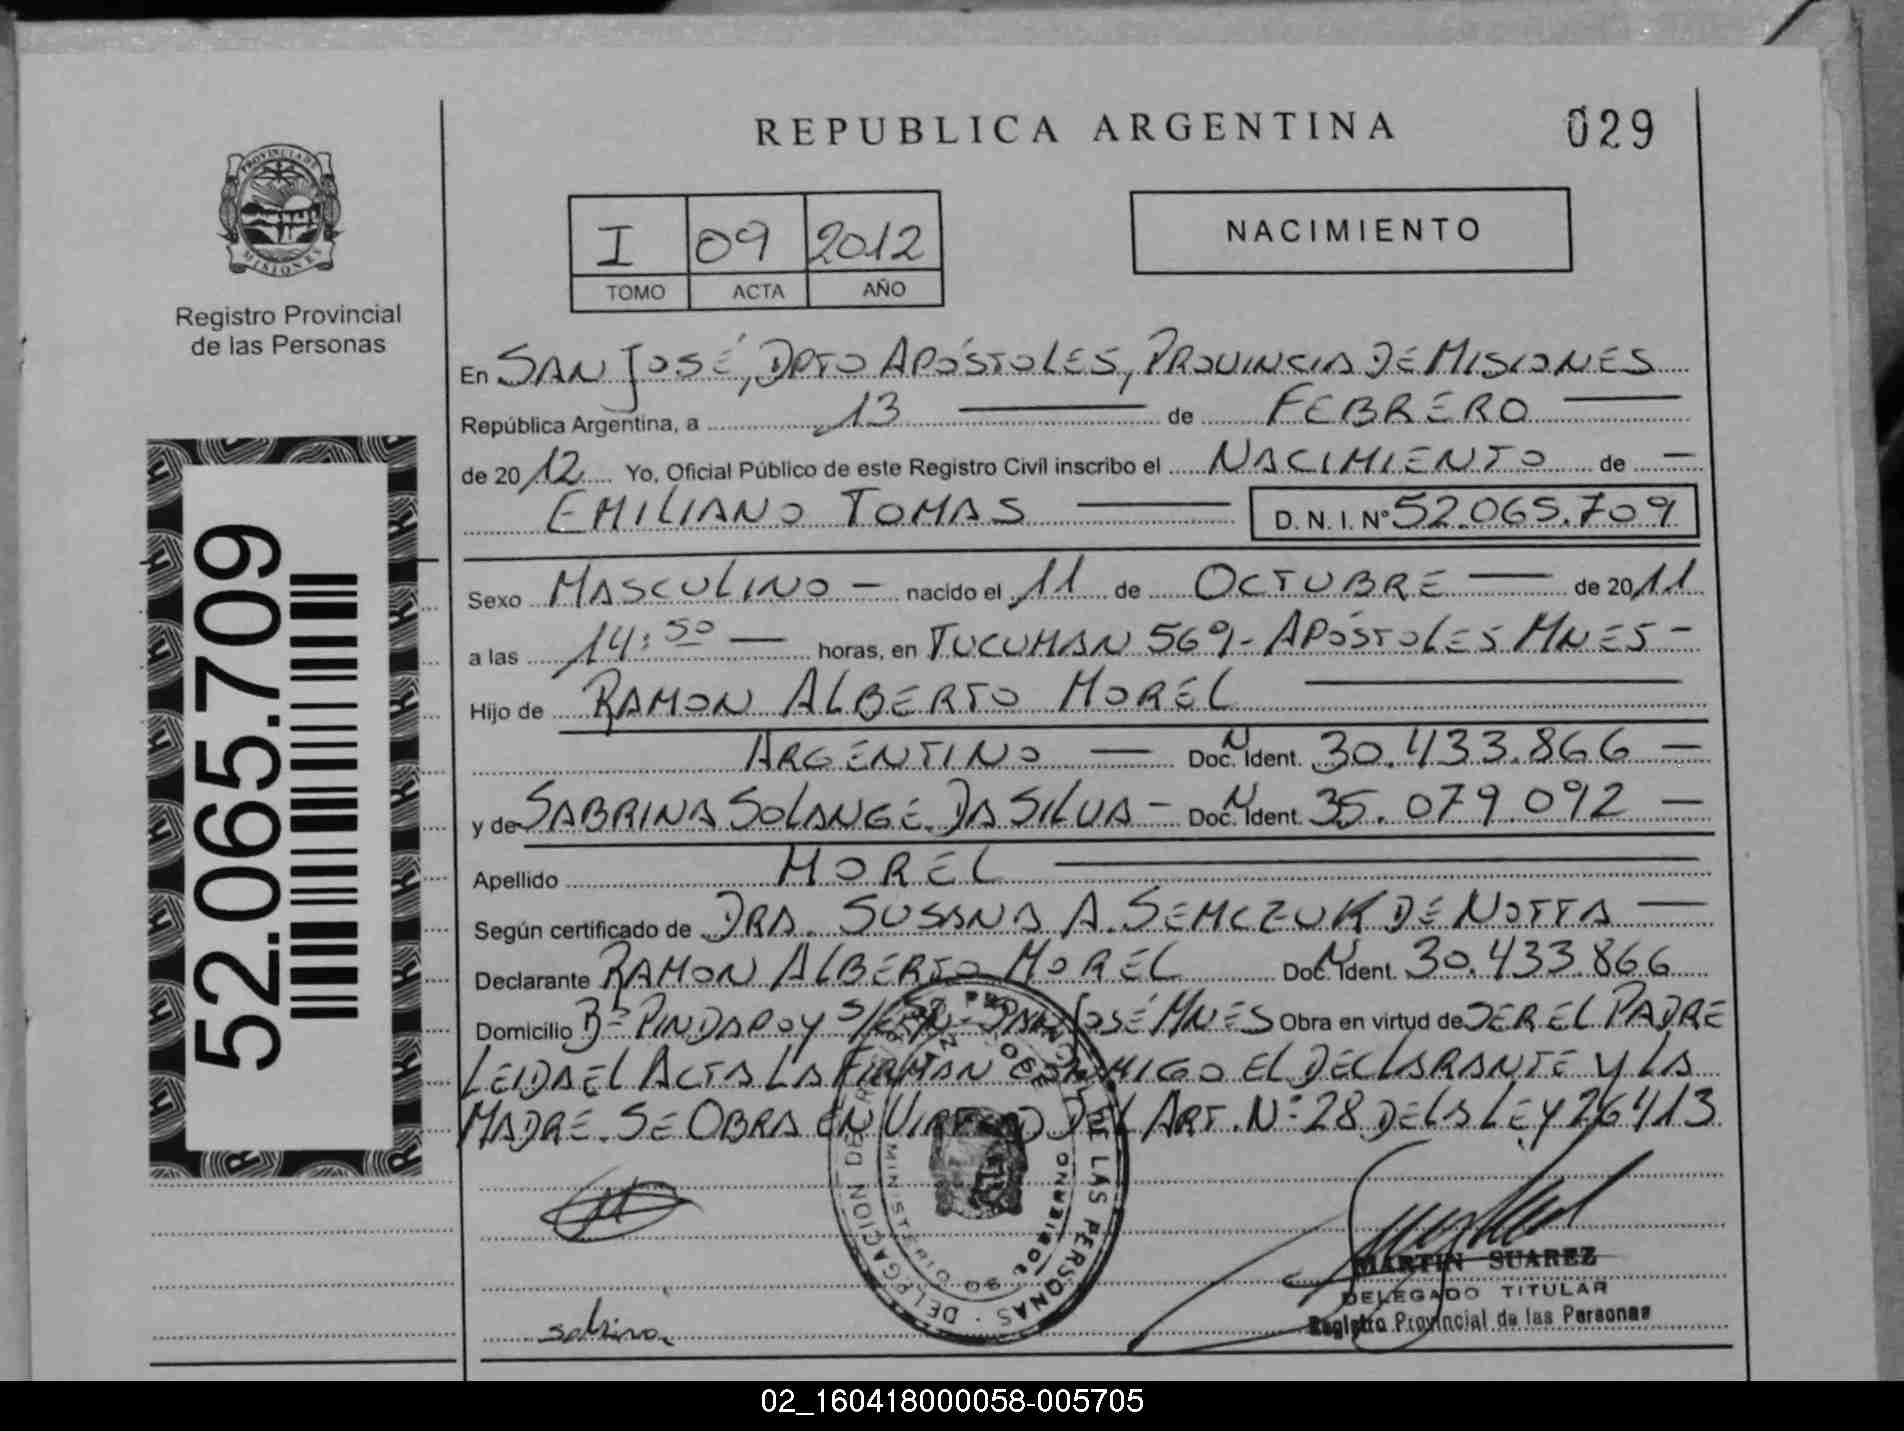 REPUBLICA ARGENTINA
029
PROVINCIA DE
MISIONES
Registro Provincial
de las Personas
I 09 2012
TOMO ACTA AÑO
NACIMIENTO
52.065.709
En SAN JOSÉ, DPTO APÓSTOLES, PROVINCIA DE MISIONES
República Argentina, a 13 de FEBRERO
de 2012 Yo, Oficial Público de este Registro Civil inscribo el NACIMIENTO de
EMILIANO TOMAS D. N. I. Nº 52.065.709
Sexo MASCULINO nacido el 11 de OCTUBRE de 2011
a las 14:50 horas, en TUCUMAN 569 - APÓSTOLES MNES -
Hijo de RAMON ALBERTO MOREL
ARGENTINO Doc. N Ident. 30.433.866
y de SABRINA SOLANGE DA SILVA - Doc. N Ident. 35.079.092
Apellido MOREL
Según certificado de DRA. SUSANA A. SEMCZUK DE NOTTA
Declarante RAMON ALBERTO MOREL Doc. N Ident. 30.433.866
Domicilio Bº PINDAPOY S/N - SAN JOSÉ MNES Obra en virtud de SER EL PADRE
LEIDA EL ACTA LA FIRMAN CONMIGO EL DECLARANTE Y LA
MADRE. SE OBRA EN VIRTUD DEL ART. Nº 28 DE LA LEY 26413
DELEGACION DE LAS PERSONAS
MINISTERIO DE GOBIERNO
MARTIN SUAREZ
DELEGADO TITULAR
Registro Provincial de las Personas
sabrina
02_160418000058-005705